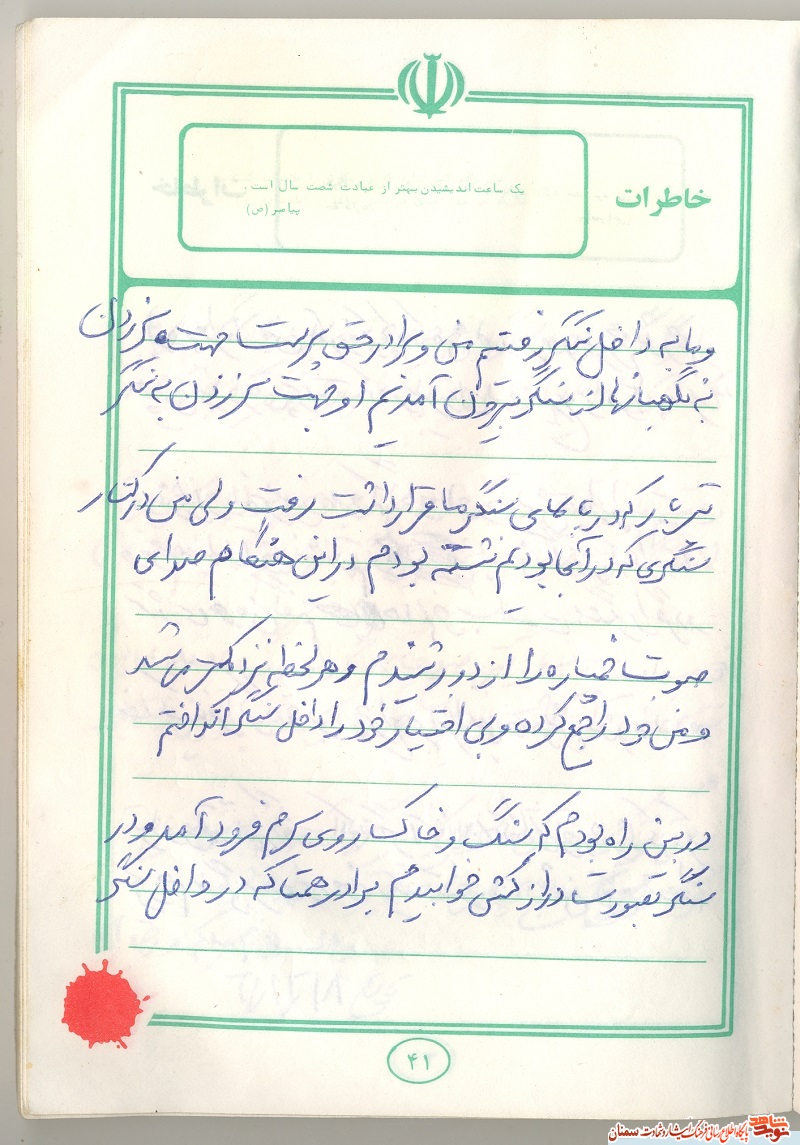 خاطرات
یک ساعت اندیشیدن بهتر از عبادت شصت سال است.
پیامبر (ص)
و ما به داخل سنگر رفتیم من و برادر حق پرست جهت سر زدن
به نگهبانها از سنگر بیرون آمدیم او جهت سر زدن به سنگر
تیربار که در بالای سنگر ما قرار داشت رفت ولی من در کنار
سنگری که در آنجا بودیم نشسته بودم در این هنگام صدای
صوت خمپاره را از دور شنیدم و هر لحظه نزدیکتر می شد
و من خود را جمع کرده و بی اختیار خود را داخل سنگر انداختم
در بین راه بودم که سنگ و خاک روی سرم فرود آمد و در
سنگر بصورت دراز کش خوابیدم برادر همتا که در داخل سنگر
۴۱
نوید شاهد
پایگاه اطلاع رسانی فرهنگ ایثار و شهادت سمنان